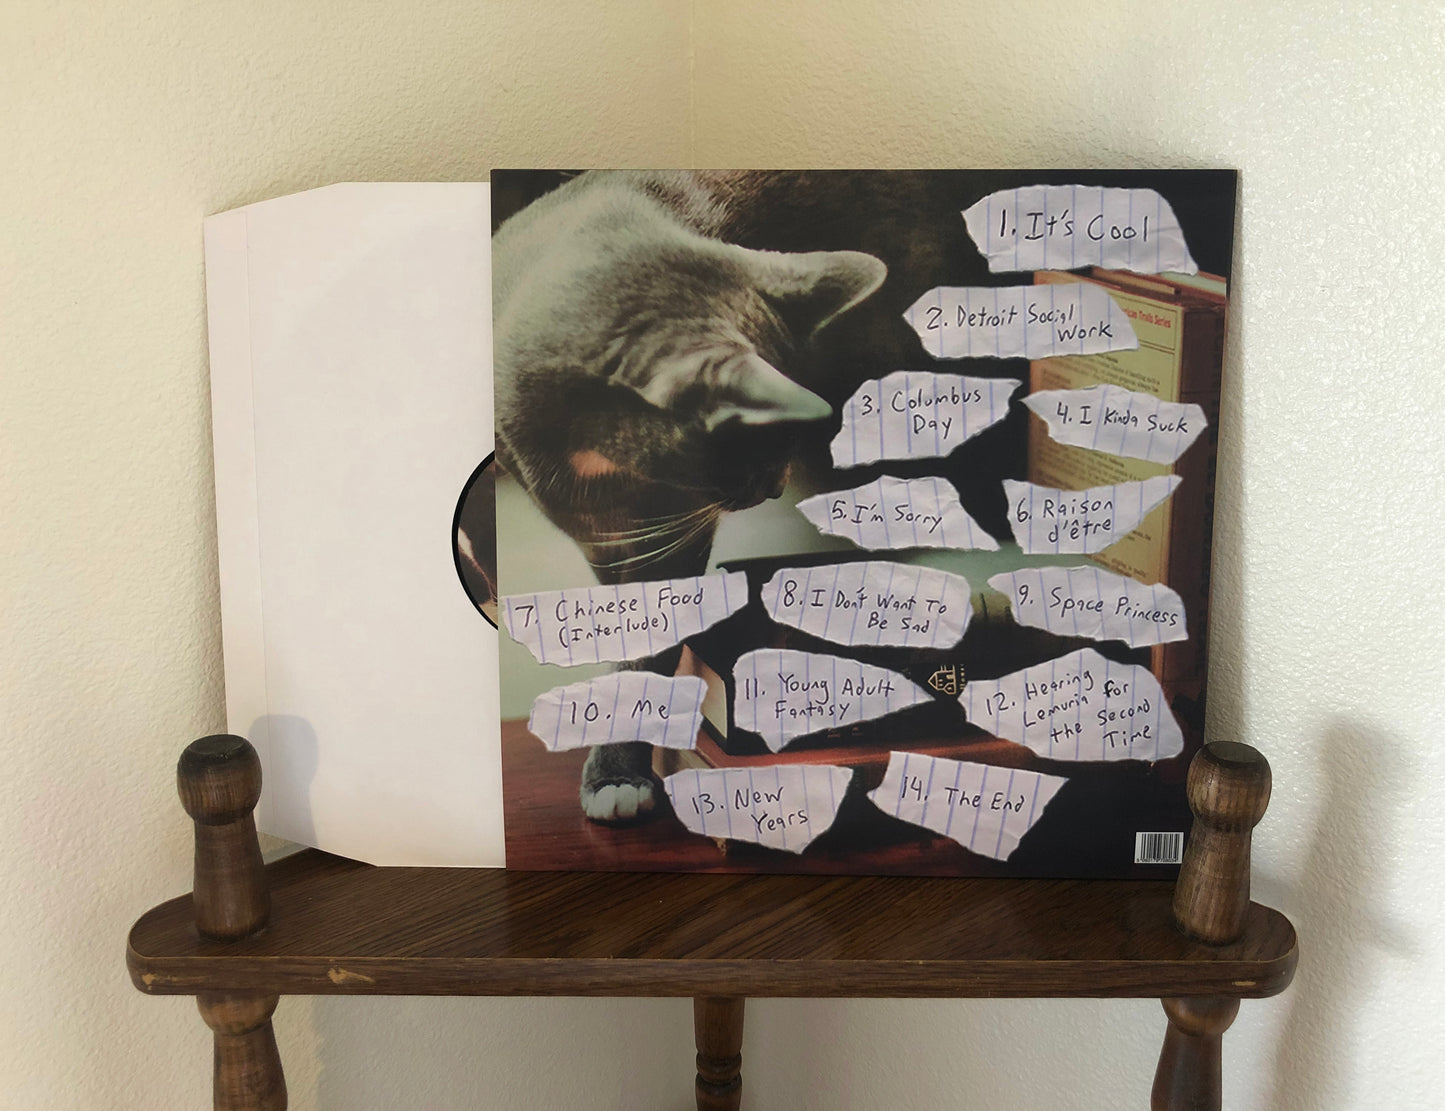 1. It's Cool
2. Detroit Social
Work
Trails Series
3. Columbus
Day
4. I Kinda Suck
5. I'm Sorry
6. Raison
d'être
7. Chinese Food
(Interlude)
8. I Don't Want To
Be Sad
9. Space Princess
10. Me
11. Young Adult
Fantasy
12. Hearing
Lemuria for
the Second
Time
13. New
Years
14. The End